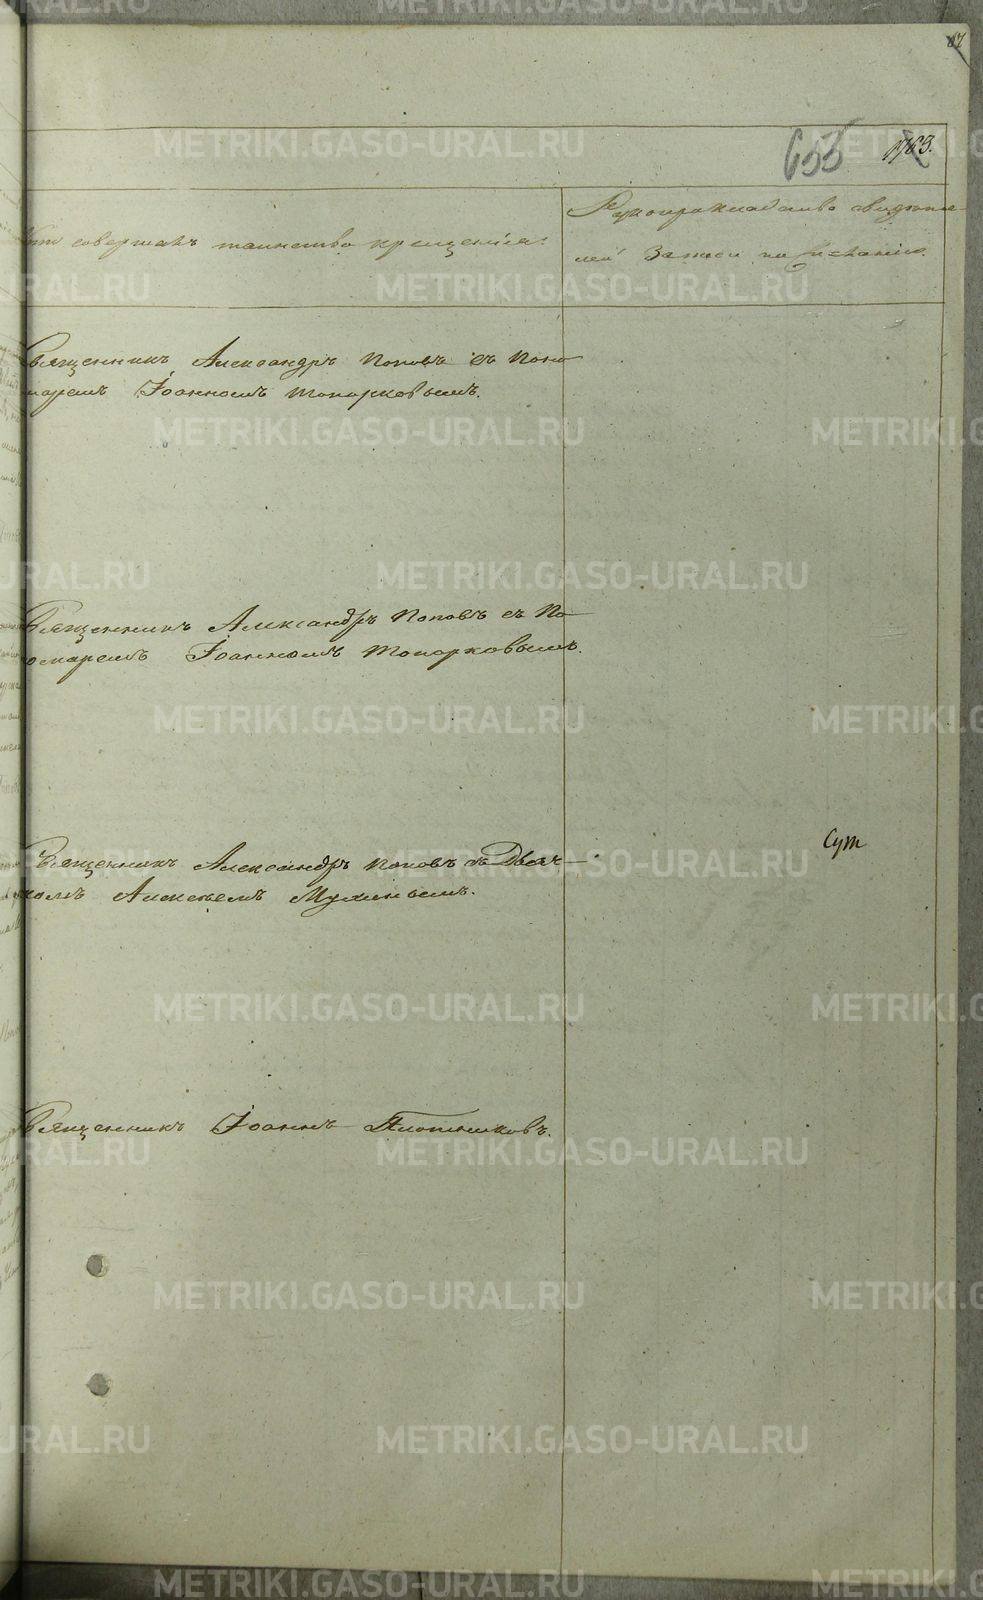 67
655
1763.
Кто совершалъ таинство крещенія.
Рукоприкладство свидѣте-
лей записи по желанію.
Священникъ Александръ Поповъ съ Поно
маремъ Іоанномъ Топорковымъ.
Священникъ Александръ Поповъ съ По-
номаремъ Іоанномъ Топорковымъ.
Священникъ Александръ Поповъ съ Дьяч-
комъ Алексѣемъ
Сут
Священникъ Іоаннъ Плотниковъ.
METRIKI.GASO-URAL.RU